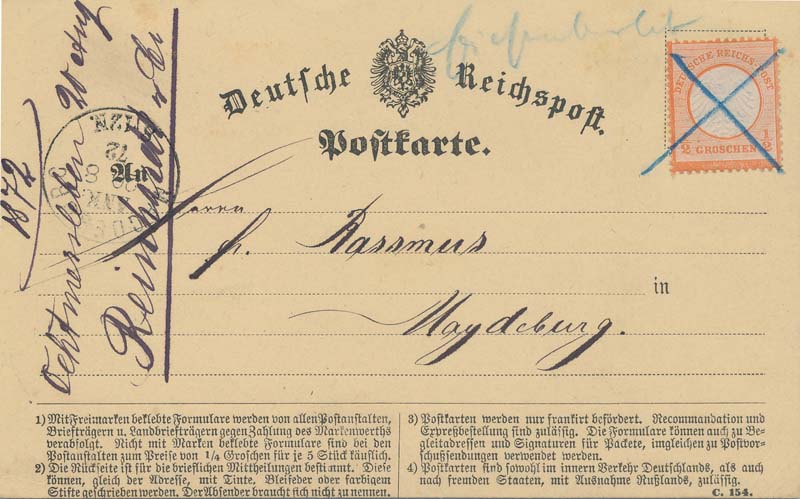 Deutsche Reichspost.
Postkarte.
DEUTSCHE REICHS-POST
1/2 GROSCHEN 1/2
1872
Ochtmersleben 20 Aug
Reinhardt
72
8
An
Herrn
H. Rassmus
in
Magdeburg.
1) Mit Freimarken beklebte Formulare werden von allen Postanstalten,
Briefträgern u. Landbriefträgern gegen Zahlung des Markenwerths
verabfolgt. Nicht mit Marken beklebte Formulare sind bei den
Postanstalten zum Preise von 1/4 Groschen für je 5 Stück käuflich.
2) Die Rückseite ist für die brieflichen Mittheilungen bestimmt. Diese
können, gleich der Adresse, mit Tinte, Bleifeder oder farbigem
Stifte geschrieben werden. Der Absender braucht sich nicht zu nennen.
3) Postkarten werden nur frankirt befördert. Recommandation und
Expreßbestellung sind zulässig. Die Formulare können auch zu Be-
gleitadressen und Signaturen für Packete, imgleichen zu Postvor-
schußsendungen verwendet werden.
4) Postkarten sind sowohl im innern Verkehr Deutschlands, als auch
nach fremden Staaten, mit Ausnahme Rußlands, zulässig.
C. 154.